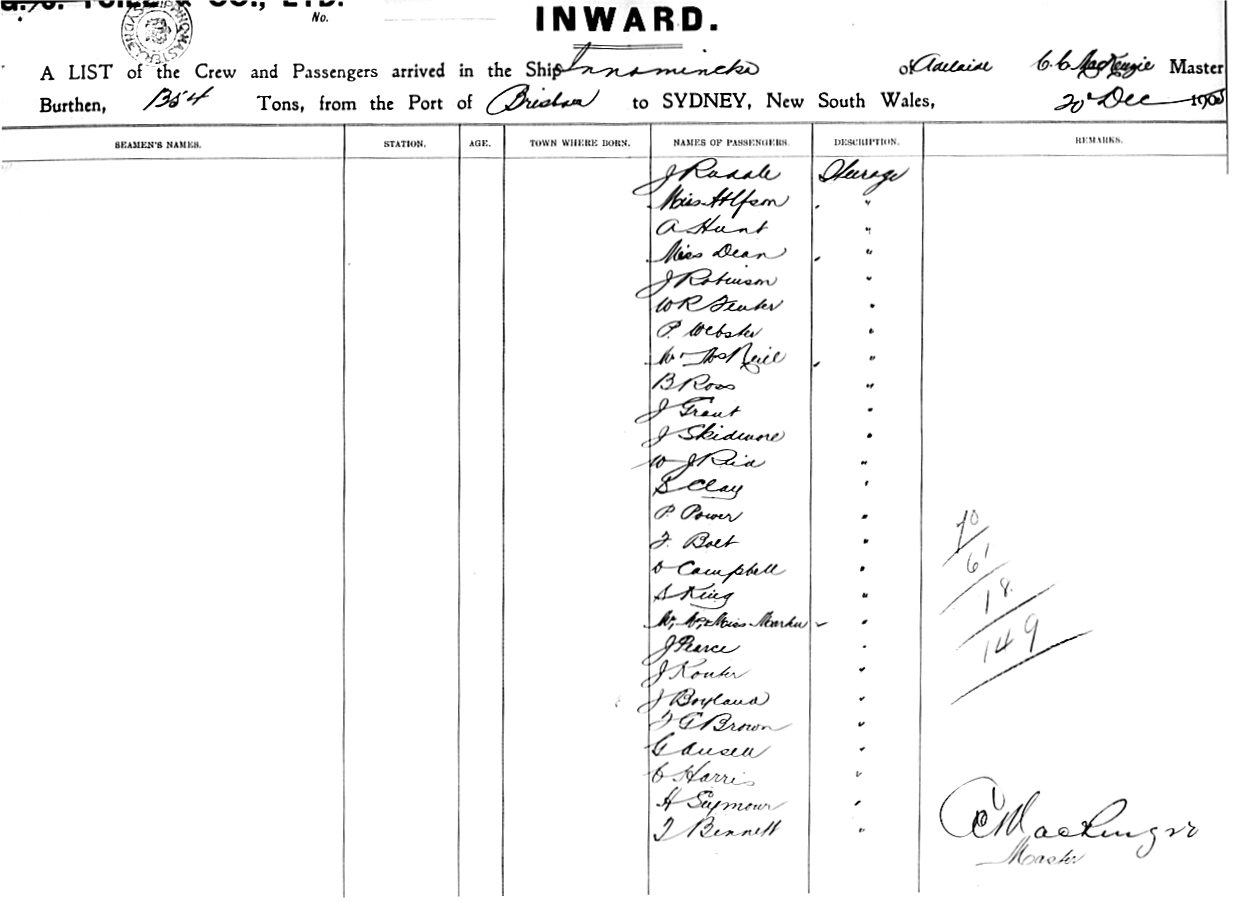 CO., LTD.
No.
INWARD.
A LIST of the Crew and Passengers arrived in the Ship Innamincka of Adelaide C.C. MacKenzie Master
Burthen, Tons, from the Port of Brisbane to SYDNEY, New South Wales, 20 Dec 190
SEAMEN'S NAMES. STATION. AGE. TOWN WHERE BORN. NAMES OF PASSENGERS. DESCRIPTION. REMARKS.
J Steerage
Miss "
A Hunt "
Miss Dean "
J Robinson "
W R "
P. Webster "
Mr McNeill "
B Ross "
J Grant "
J Skidmore "
W J Reid "
S Clay "
P. Power "
F. Bolt "
D Campbell "
S King "
Mr, Mrs, Miss "
J Pearce "
J "
J Boyland "
F G Brown "
G Ansell "
C Harris "
H Seymour "
T Bennett "
70
61
18
149
C C MacKenzie
Master